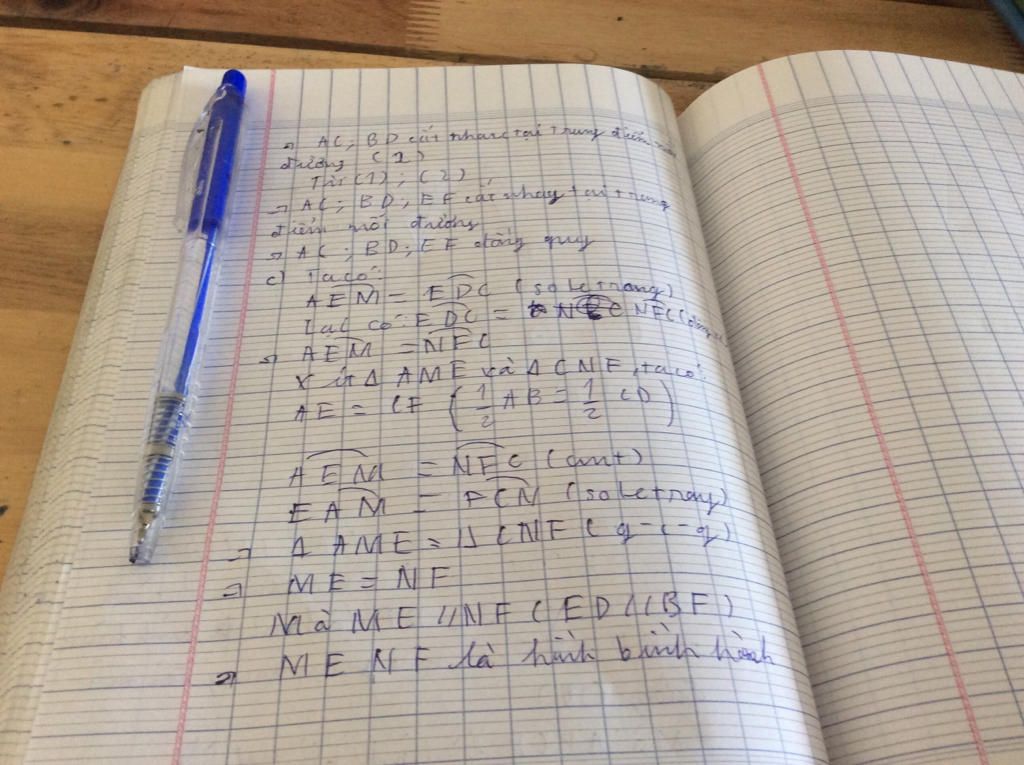 → AC; BD cắt nhau tại trung điểm mỗi
đường (1)
Từ (1); (2)
→ AC; BD; EF cắt nhay tại trung
điểm mỗi đường
→ AC; BD; EF đồng quy
c) Ta có:
AEM = EDC (so le trong)
Lại có: EDC = NFC (đồng vị)
→ AEM = NFC
xét Δ AME và Δ CNF, ta có:
AE = CF (1/2 AB = 1/2 CD)
AEM = NFC (cmt)
EAM = FCN (so le trong)
→ Δ AME = Δ CNF (g-c-g)
→ ME = NF
Mà ME // NF (ED // BF)
→ MENF là hình bình hành